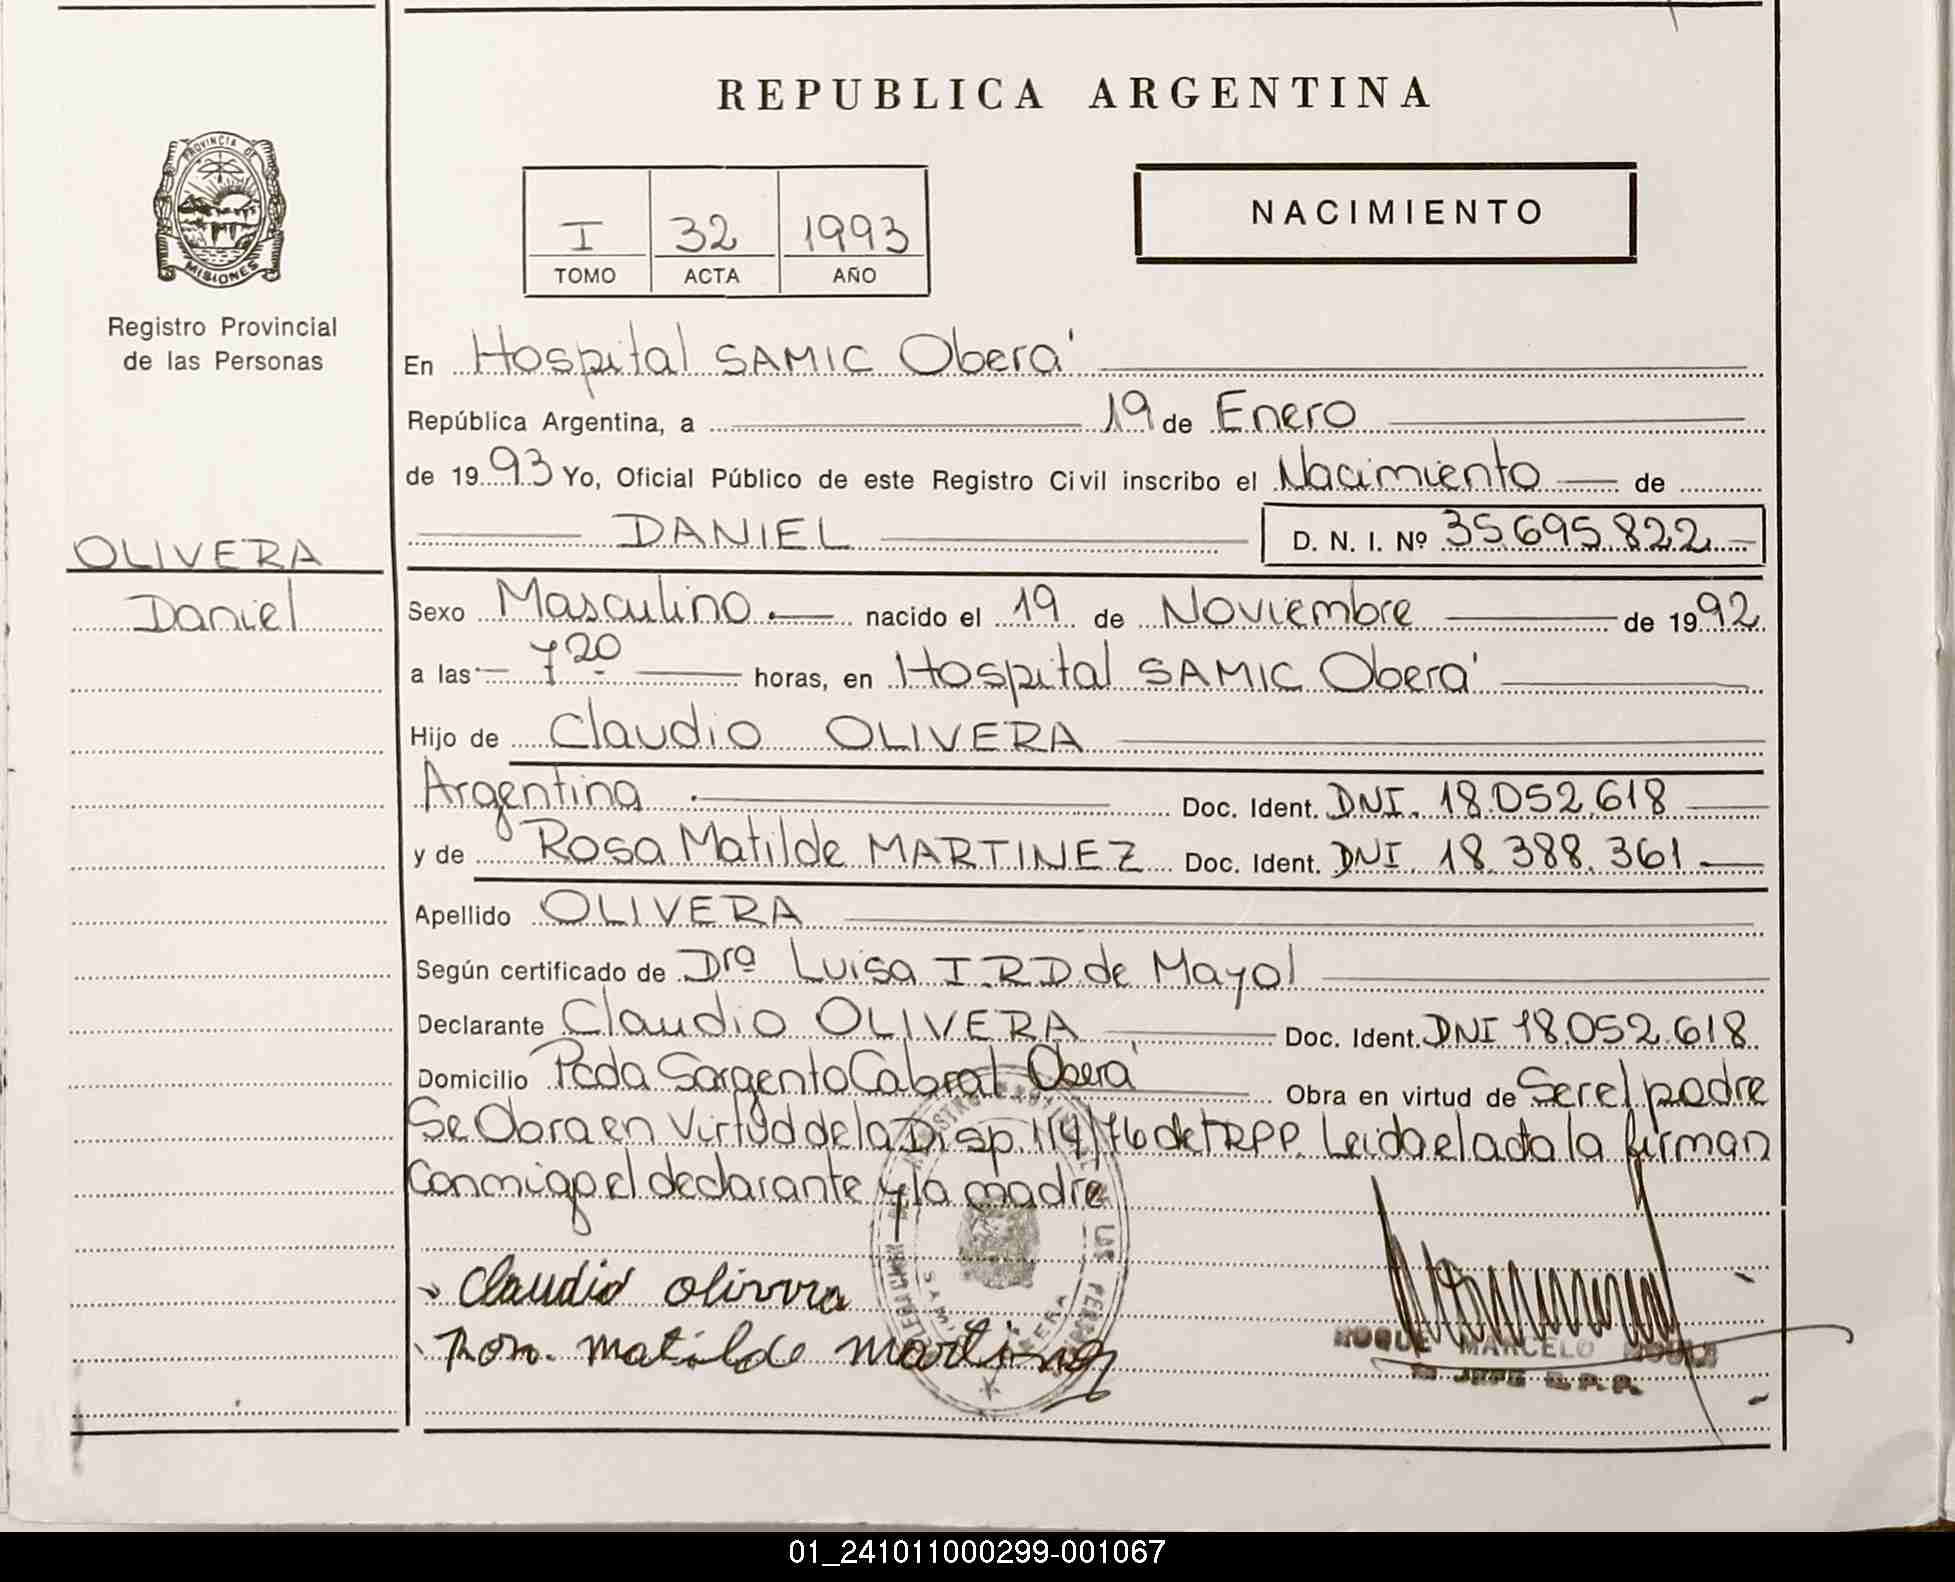 REPUBLICA ARGENTINA
PROVINCIA DE
MISIONES
Registro Provincial
de las Personas
I 32 1993
TOMO ACTA AÑO
NACIMIENTO
En Hospital SAMIC Oberá
República Argentina, a 19 de Enero
de 1993 Yo, Oficial Público de este Registro Civil inscribo el Nacimiento de
DANIEL D. N. I. Nº 35.695.822
OLIVERA
Daniel
Sexo Masculino nacido el 19 de Noviembre de 1992
a las 7 20 horas, en Hospital SAMIC Oberá
Hijo de Claudio OLIVERA
Argentina Doc. Ident. DNI. 18.052.618
y de Rosa Matilde MARTINEZ Doc. Ident. DNI 18.388.361
Apellido OLIVERA
Según certificado de Drª Luisa I.R.D. de Mayol
Declarante Claudio OLIVERA Doc. Ident. DNI 18.052.618
Domicilio Pcda Sargento Cabral Oberá Obra en virtud de Ser el padre
Se Obra en Virtud de la Disp. 114/76 del RPP. Leida el acta la firman
Conmigo el declarante y la madre
Claudio Olivera
matilde martinez
ROQUE MARCELO
JEFE R.P.P.
01_241011000299-001067